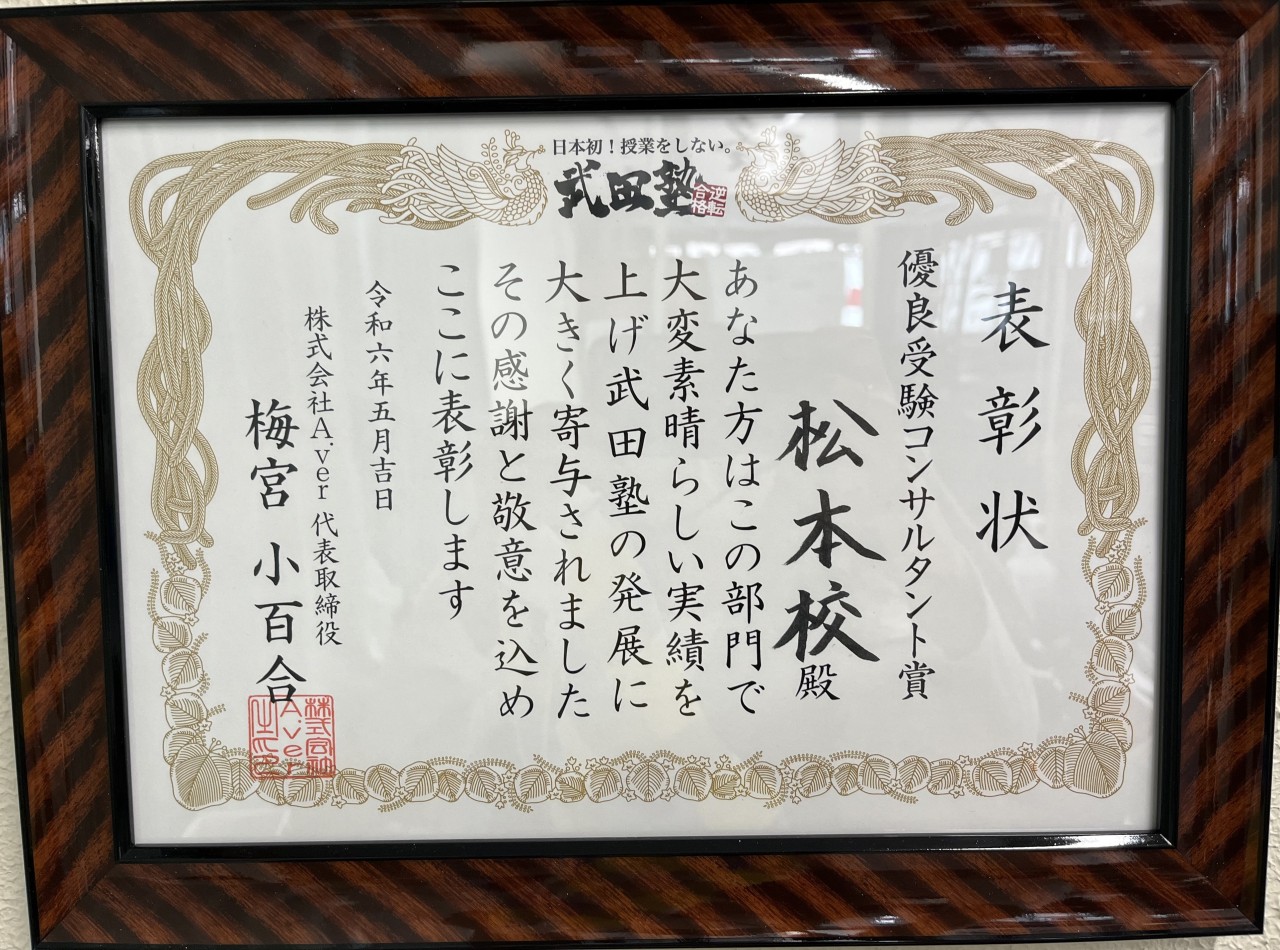 日本初!授業をしない。
武田塾
逆転
合格
表彰状
優良受験コンサルタント賞
松本校殿
あなた方はこの部門で
大変素晴らしい実績を
上げ武田塾の発展に
大きく寄与されました
その感謝と敬意を込め
ここに表彰します
令和六年五月吉日
株式会社A.ver 代表取締役
梅宮 小百合
株式会社
A.ver
之印